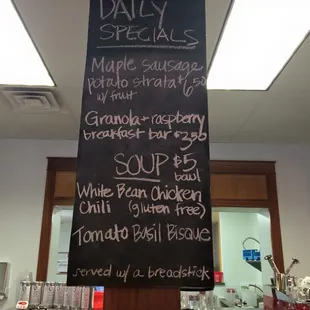 DAILY
SPECIALS
Maple Sausage
potato strata $6.50
w/ fruit
Granola + raspberry
breakfast bar $3.50
SOUP $5
bowl
White Bean Chicken
Chili (gluten free)
Tomato Basil Bisque
served w/ a breadstick